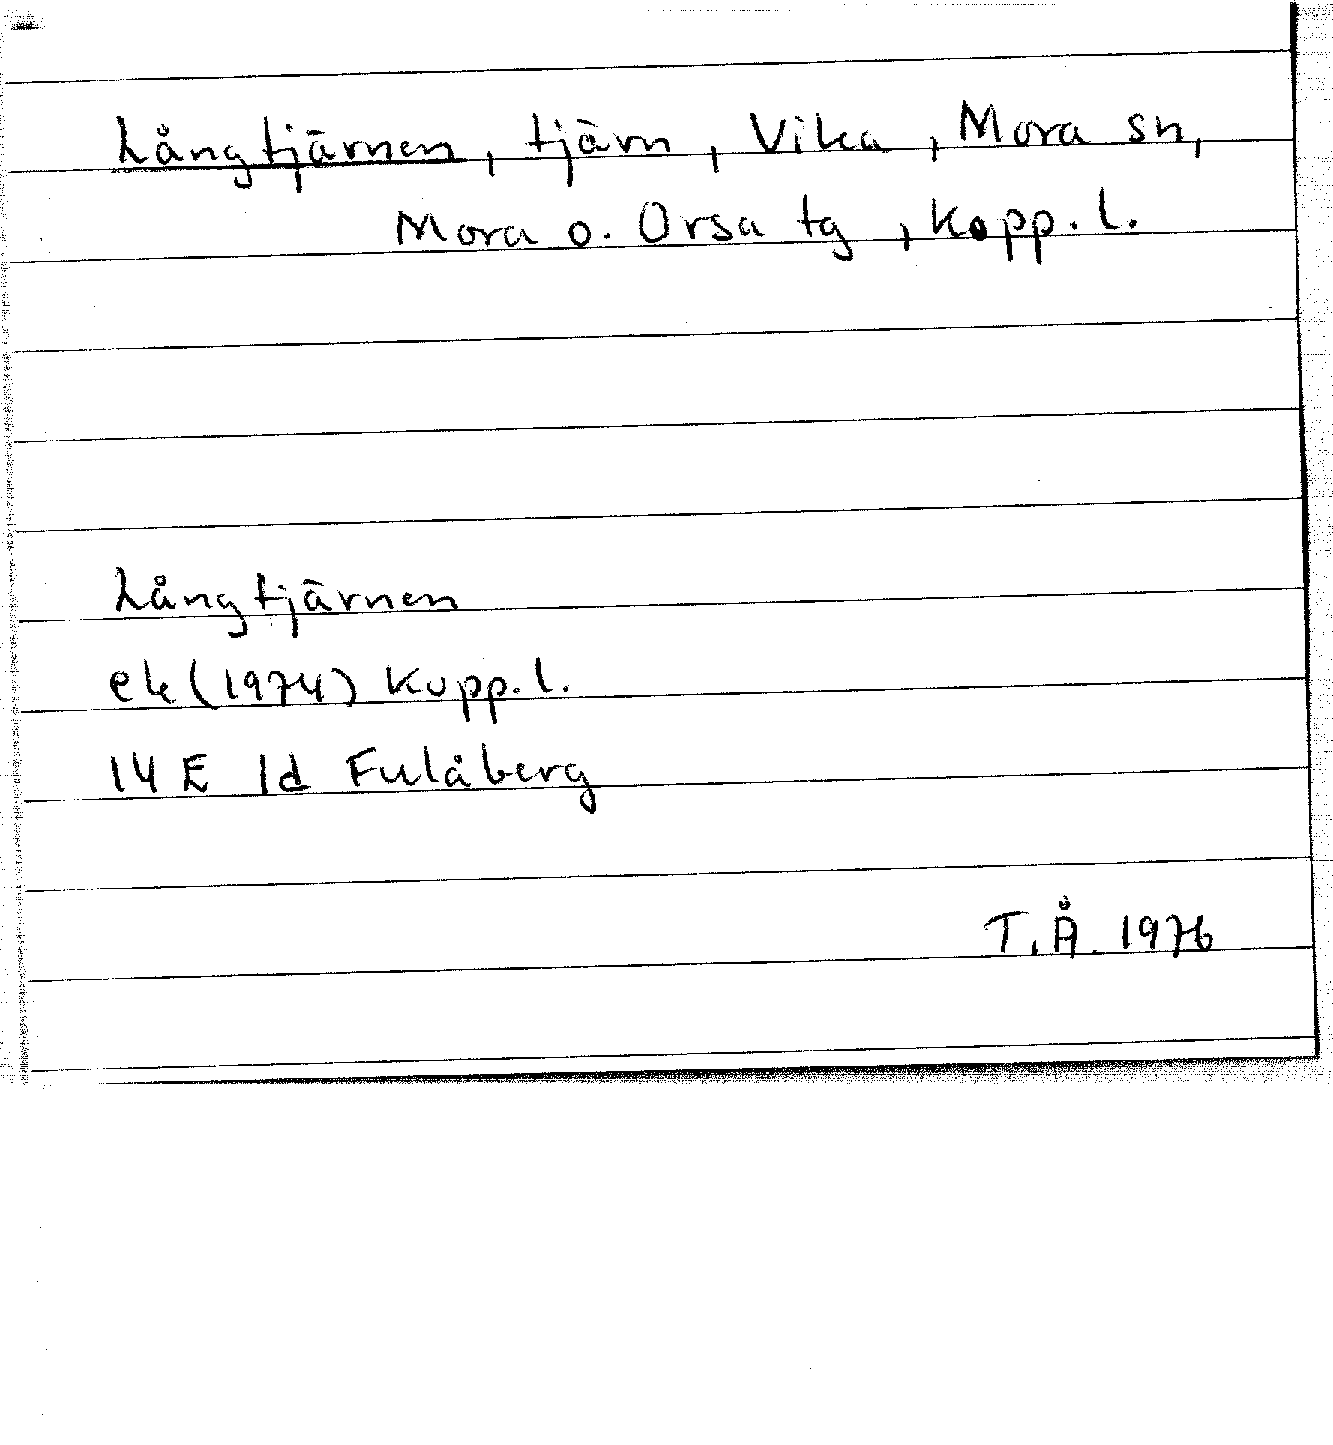 Långtjärnen, tjärn, Vika, Mora sn,
Mora o. Orsa tg, Kopp.l.
Långtjärnen
ek (1974) Kopp.l.
14 E 1d Fulåberg
T.Å. 1976